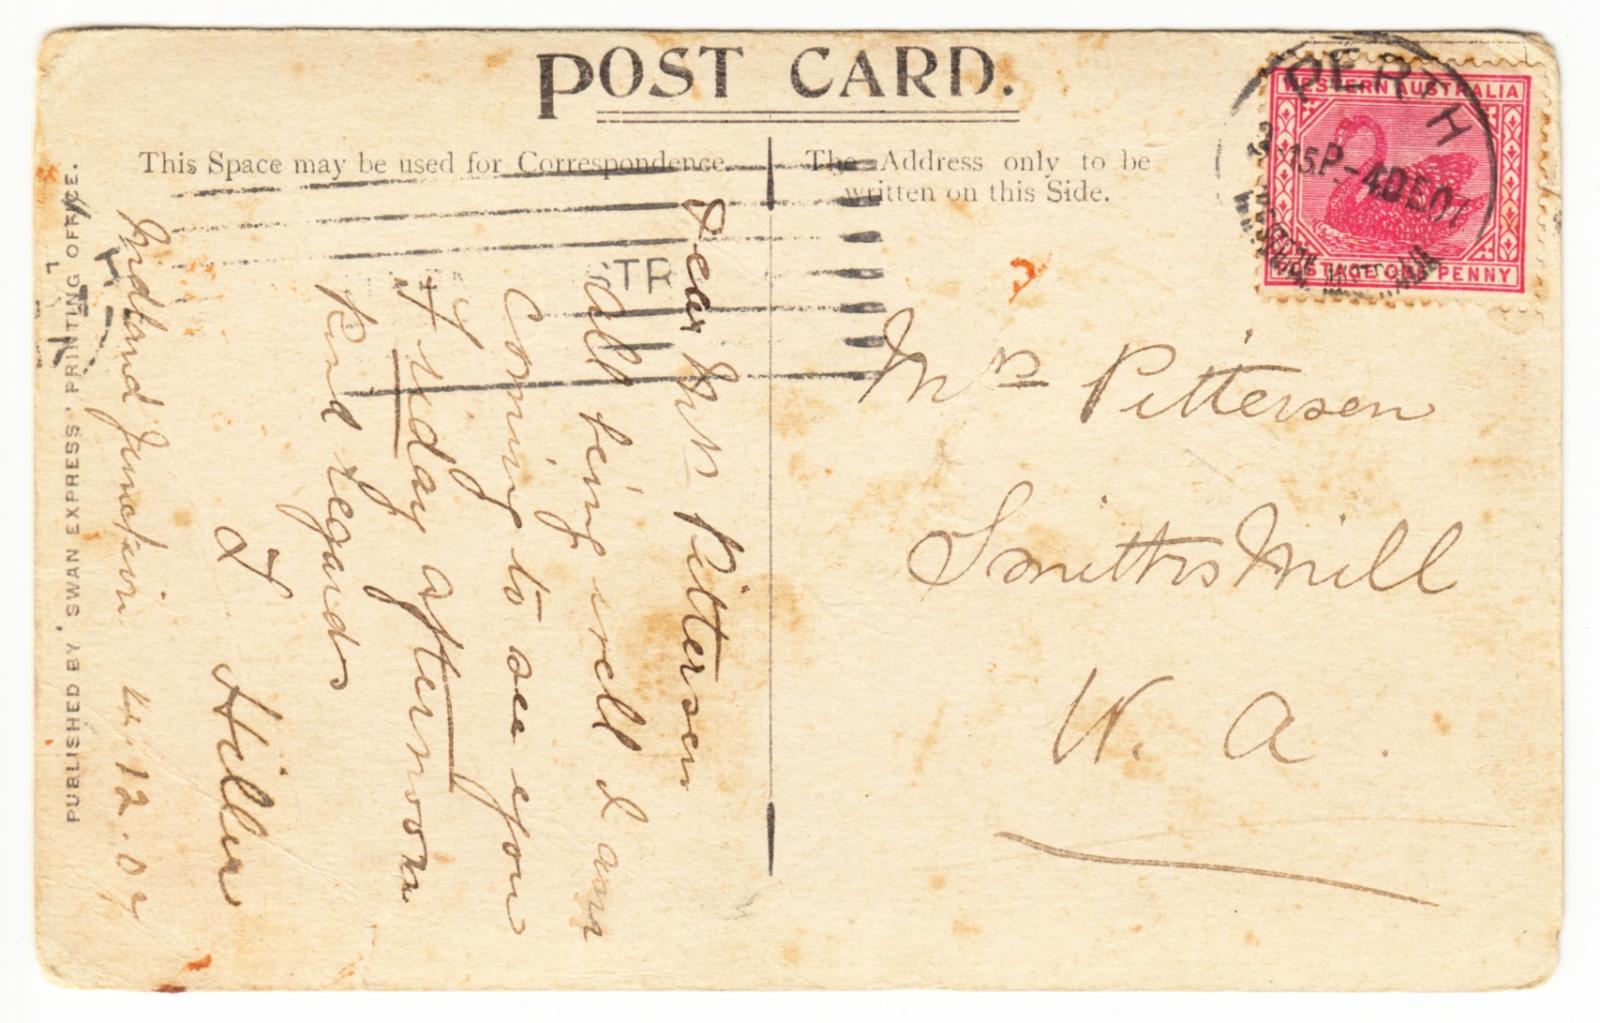 POST CARD.
This Space may be used for Correspondence.
The Address only to be
written on this Side.
PUBLISHED BY 'SWAN EXPRESS' PRINTING OFFICE.
Midland Junction 4.12.07
Dear Mrs Pitterson
All being well I am
Coming to see you
Friday afternoon
Kind regards
F Hiller
Mrs Pitterson
Smiths Mill
W. A.
WESTERN AUSTRALIA
POSTAGE ONE PENNY
PERTH
3 15P-4DE07
WESTERN AUSTRALIA